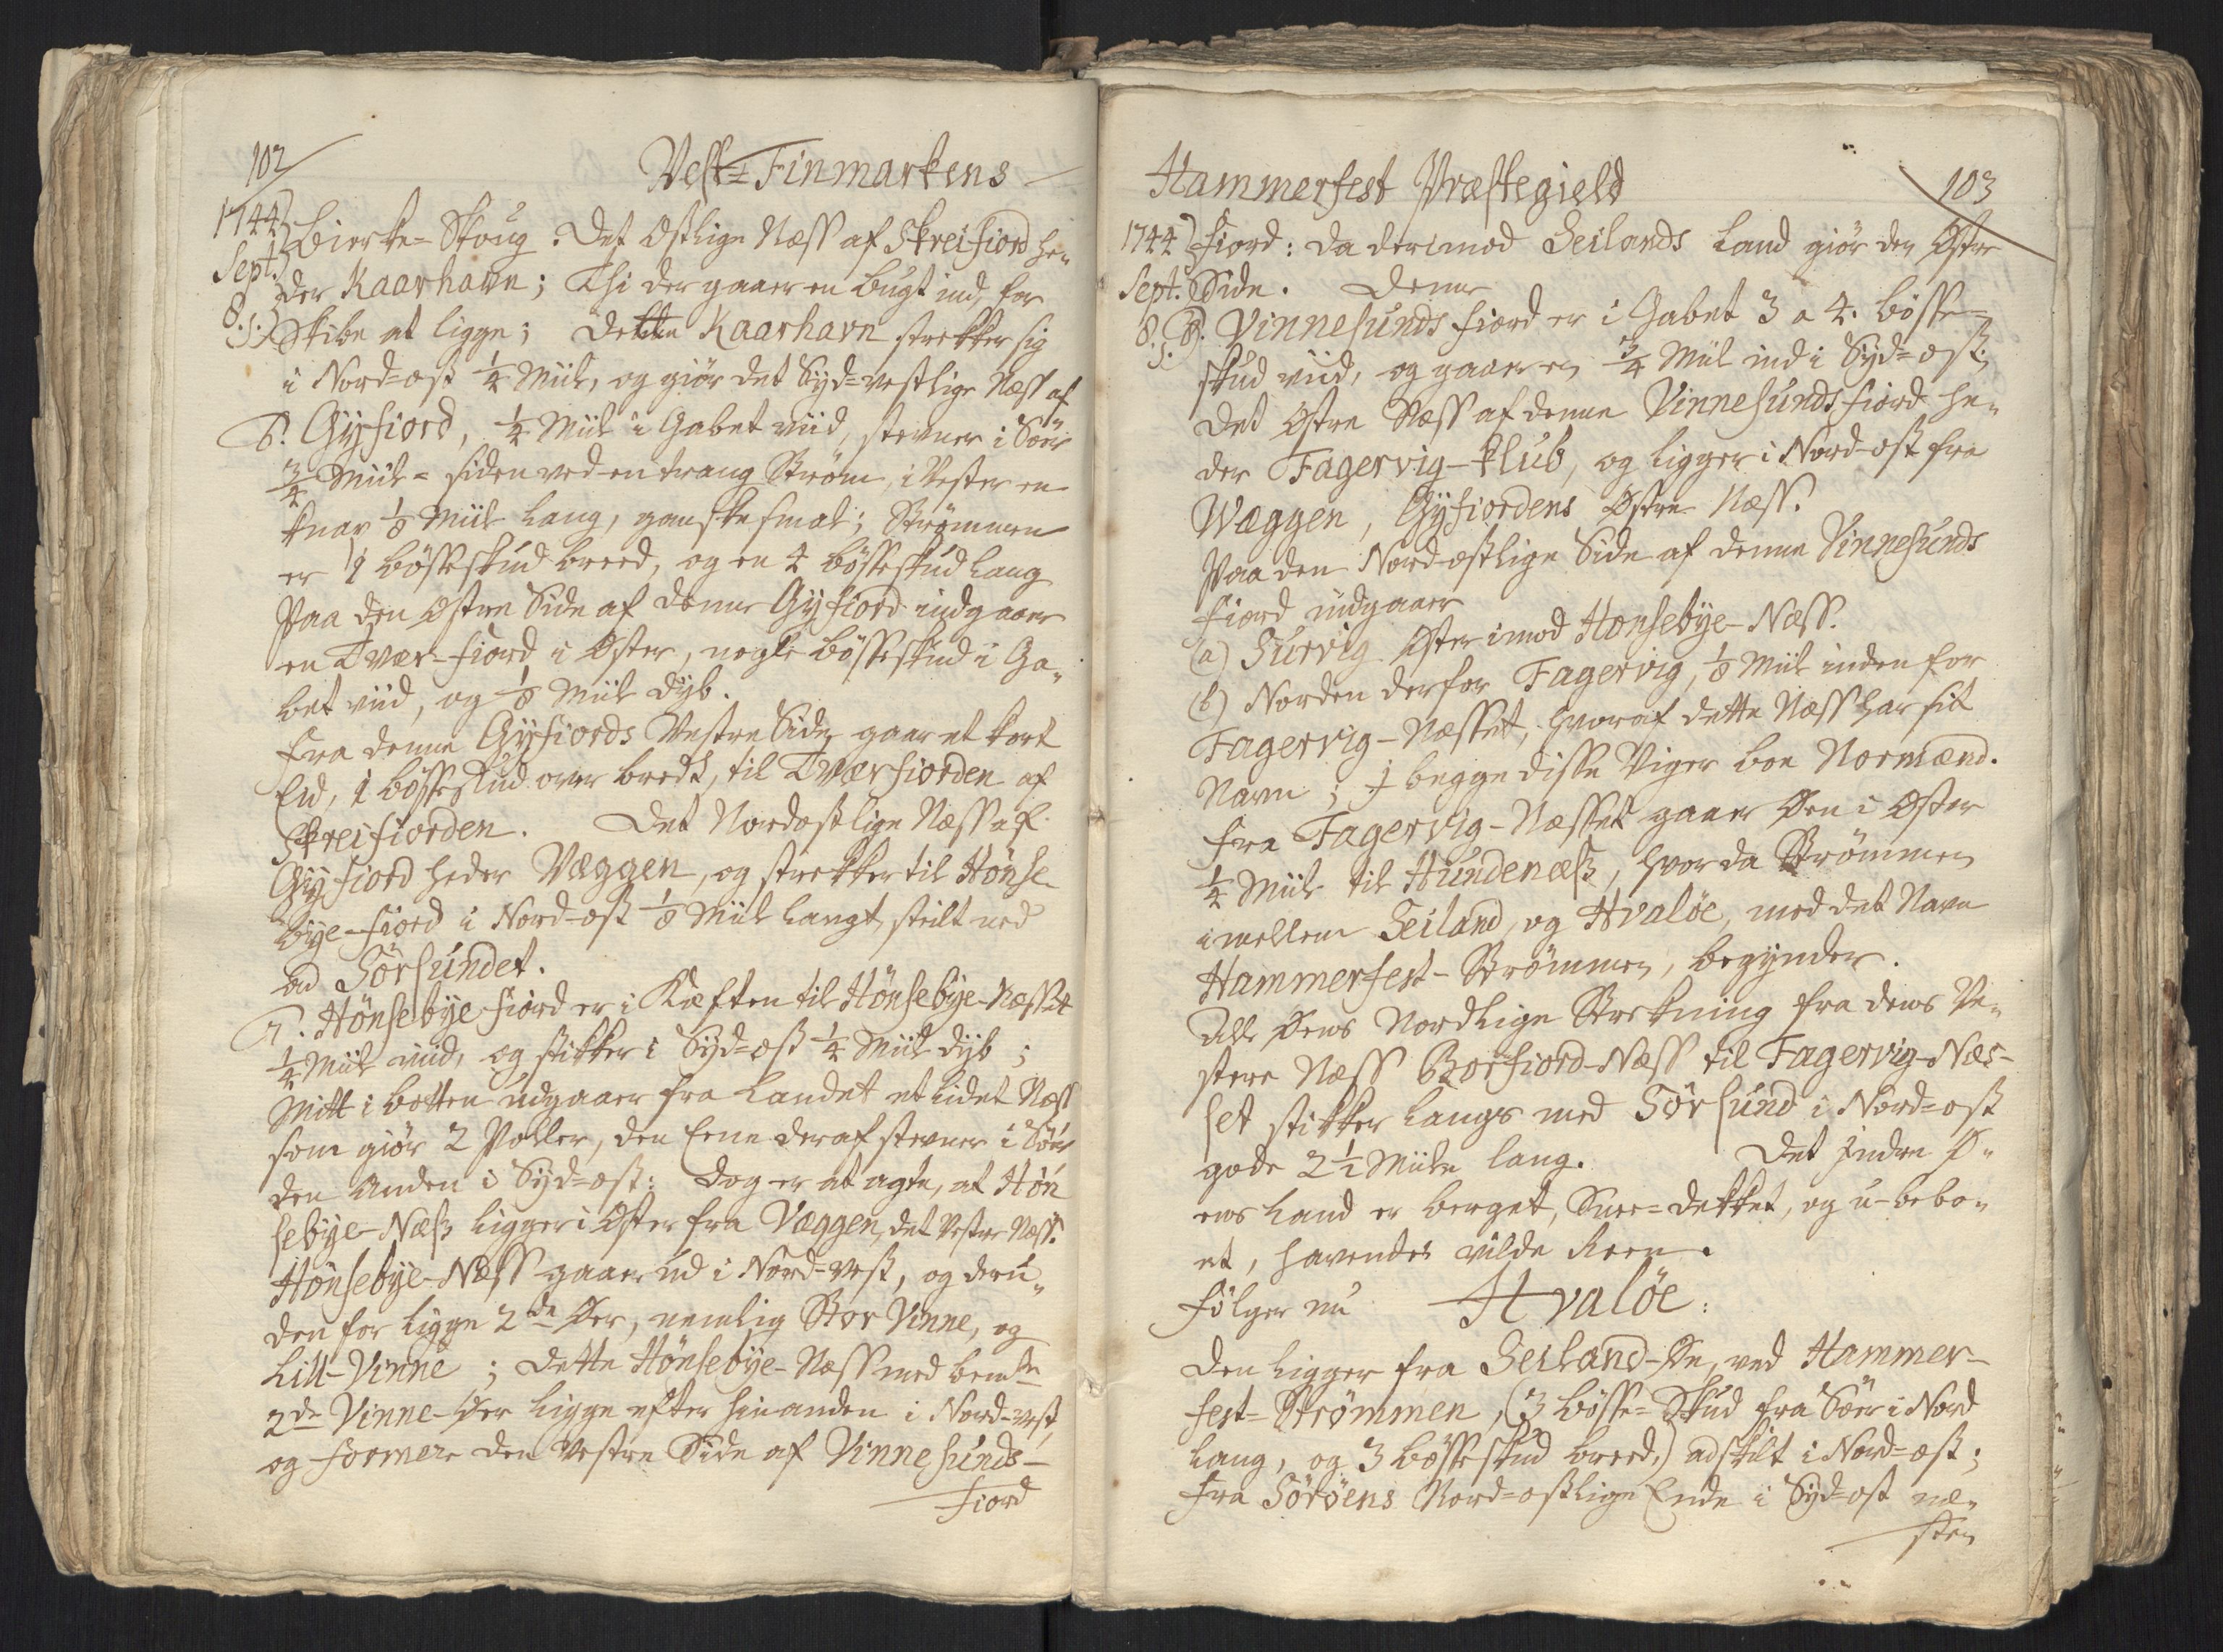 102
Vest-Finmarkens
1744 Bierke-Skoug. Det Ostlige Næss af Skreifiord he„
Sept. der Kaarhavn; Thi der gaaer en bugt ind, for
8. s. Skibe at ligge; Dette Kaarhavn strekker sig
i Nord-ost ¼ Miil, og giör det Syd-vestlige Næss af
6. Gyfiord, ¼ Miil i Gabet viid, stevner i Söer
¾ Miil - siden ved en trang Ström, i Vester en
knap ⅛ Miil lang, ganske smal; Strömmen
er 1 bösseskud breed, og en 4 bösseskud lang
Paa den Ostre Side af denne Gyfiord indgaaer
en Tvær-fiord i Oster, nogle bösseskud i Ga„
bet viid, og ⅛ Miil dyb.
Fra denne Gyfiords Vestre Side gaar et kort
Eid, 1 bösseskud over bredt, til Tværfiorden af
Skreifiorden. Det Nordostlige Næss af
Gyfiord heder Væggen, og strekker til Hönse-
bye-fiord i Nord-ost ⅛ Miil langt, steilt ned
ad Sörsundet.
7. Hönsebye fiord er i Kieften til Hönsebye-Næsset
¼ Miil viid, og stikker i Syd-ost ¼ Miil dyb;
Mitt i botten udgaaer fra Landet et lidet Næss
som giör 2 Poller, den Eene deraf stevner i Söer
den Anden i Syd-ost: Dog er at agte, at Hön
sebye-Næss ligger i Oster fra Væggen, det Vestre Næss.
Hönsebye-Næss gaaer ud i Nord-vest, og deru„
den for ligge 2de Öer, nemlig Stor Vinne, og
Lill-Vinne; Dette Hönsebye-Næss med bemte
2de Vinne-Öer ligge efter hinanden i Nord-vest,
og formere den Vestre Side af Vinnesunds-
fiord
Hammerfest Præstegield
103
1744 fiord: da derimod Seilands Land giör den Ostre
Sept. Side. Denne
8. s. 8. Vinnesunds fiord er i Gabet 3 a 4. bösse-
skud viid, og gaaer en ¾ Miil ind i Syd-ost;
Det Ostre Næss af denne Vinnesunds fiord he„
der Fagervig-klub, og ligger i Nord-ost fra
Wæggen, Gyfiordens Ostre Næss.
Paa den Nord-ostlige Side af denne Vinnesunds
fiord indgaaer
(a) Survig Oster imod Honsebye-Næss.
(b) Norden derfor Fagervig, ⅛ Miil inden for
Fagervig-Næsset, hvoraf dette Næss har sit
Navn; I begge disse Viger boe Normænd.
Fra Fagervig-Næsset gaaer Öen i Oster
¼ Miil til Hundenæss, hvor da Strömmen
imellem Seiland, og Hvalöe, med det Navn
Hammerfest-Strömmen, begynder.
All Öens Nordlige Strekning fra dens Ve„
stere Næss Borfiord-Næss til Fagervig-Næs-
set stikker langs med Sörsund i Nord-ost
gode 2½ Miile lang. Det Indre Ö„
ens Land er berget, Snee-dekket, og u-bebo„
et, havendes vilde Reen.
Fölger nu Hvalöe:
Den ligger fra Seiland-Öe, ved Hammer-
fest-Strömmen, (3 bösse-Skud fra Söer i Nord
lang, og 3 bösseskud breed,) adskilt i Nord-ost;
Fra Söröens Nord-ostlige Ende i Syd-ost næ„
sten